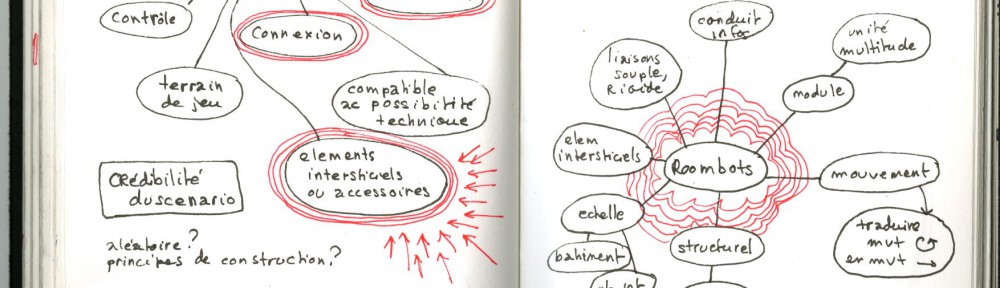 contrôle
connexion
terrain
de jeu
compatible
ac possibilité
technique
elements
intersticiels
ou accessoires
crédibilité
du scenario
aléatoire?
principes de construction?
conduit
infos
unité
multitude
liaisons
souple,
Rigide
module
elem
intersticiels
Roombots
mouvement
echelle
structurel
batiment
traduire
mvt
en mvt